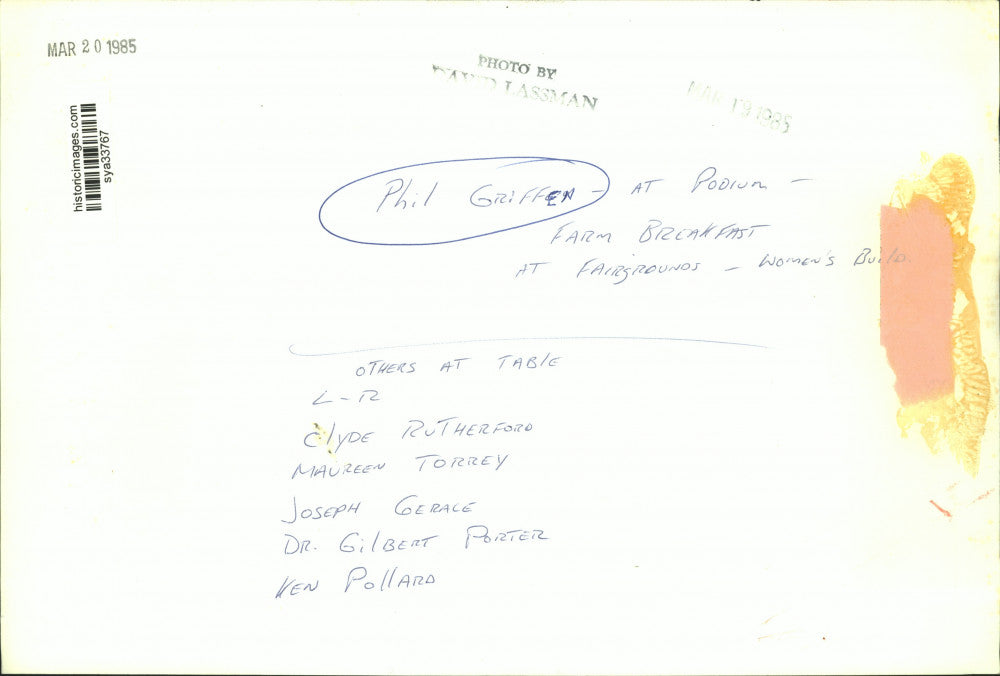 MAR 20 1985
PHOTO BY
DAVID LASSMAN
MAR 19 1985
historicimages.com
sya33767
Phil GRIFFEN - AT PODIUM -
FARM BREAKFAST
AT FAIRGROUNDS - WOMEN'S BUILD.
OTHERS AT TABLE
L-R
ClYDE RUTHERFORD
MAUREEN TORREY
JOSEPH GERACE
DR. GILBERT PORTER
KEN POLLARD